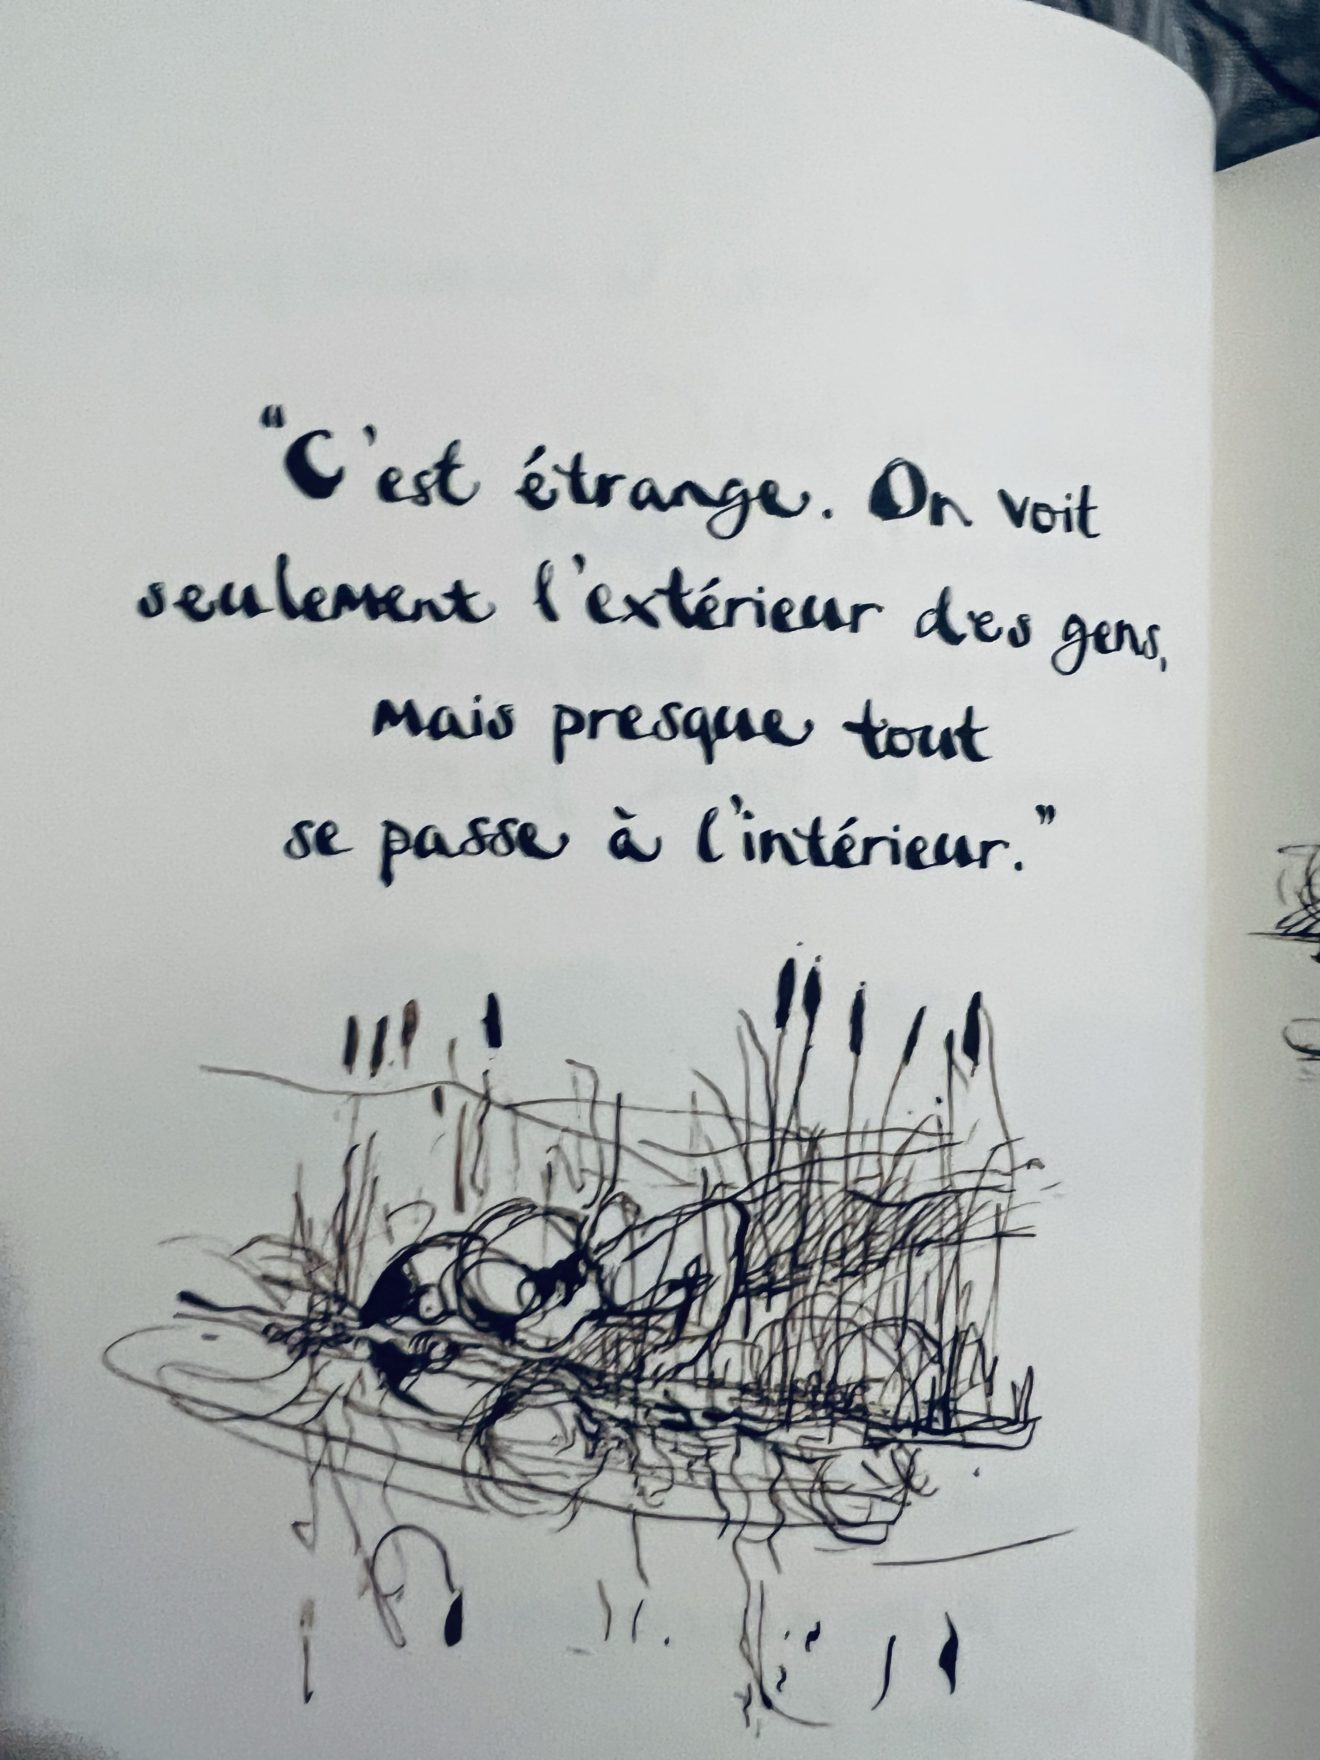 “C'est étrange. On voit
seulement l'extérieur des gens,
mais presque tout
se passe à l'intérieur.”